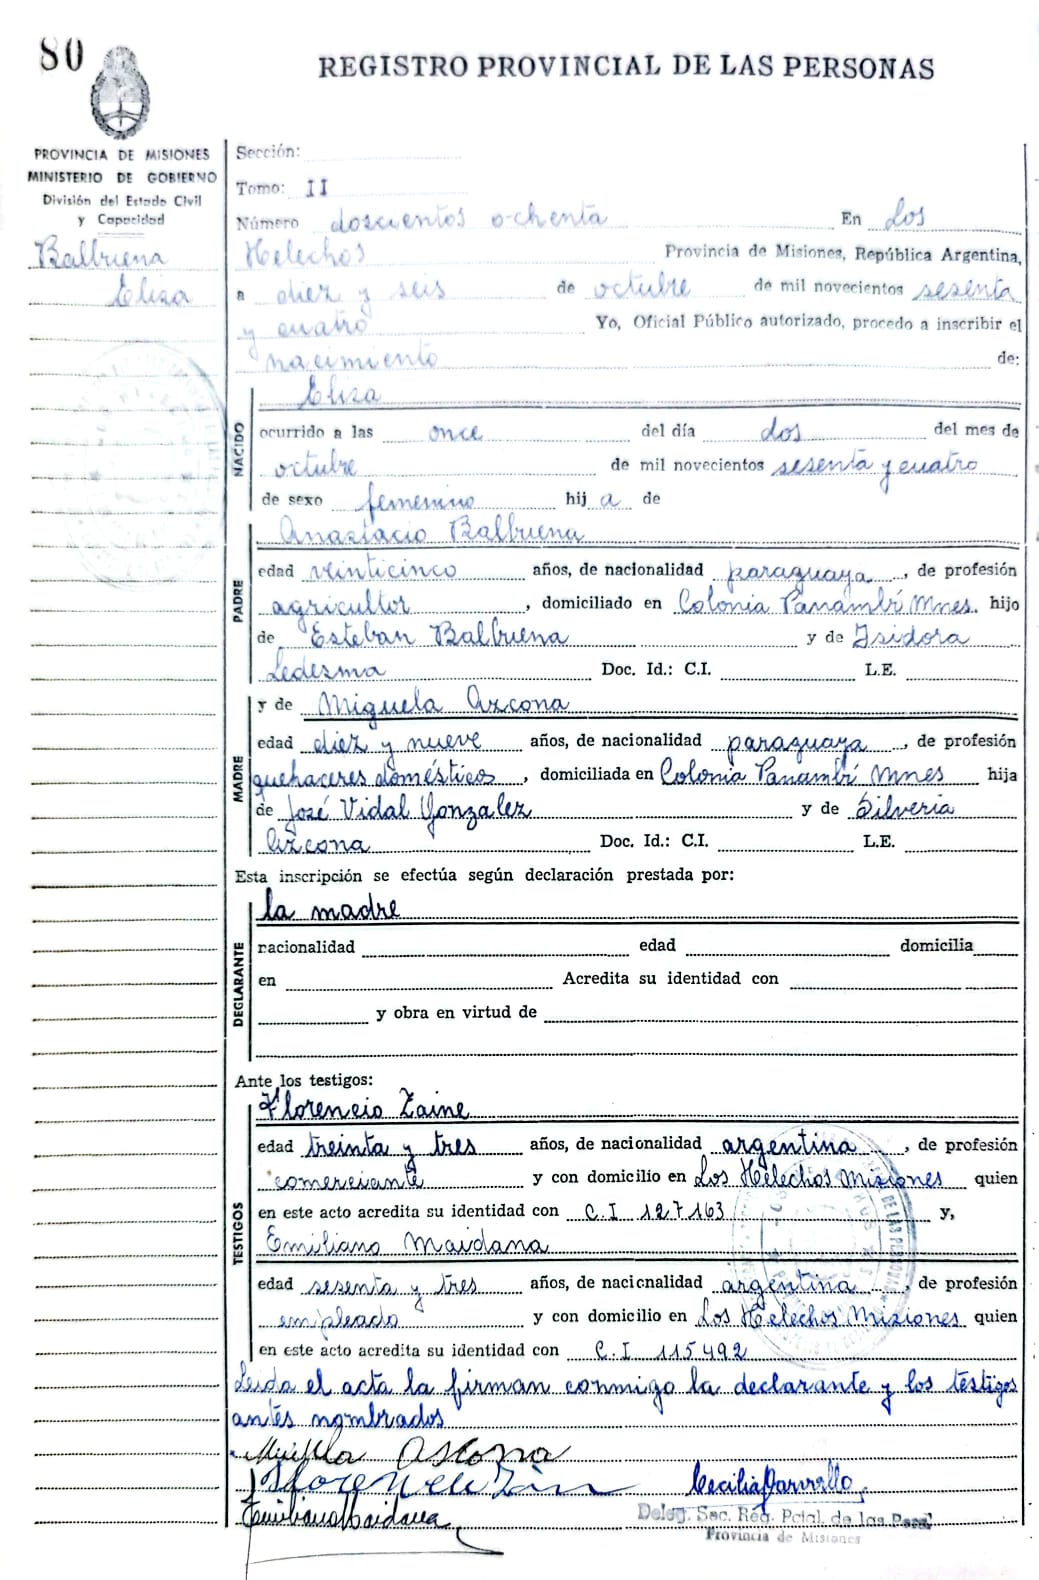 80
REGISTRO PROVINCIAL DE LAS PERSONAS
PROVINCIA DE MISIONES
MINISTERIO DE GOBIERNO
División del Estado Civil
y Capacidad
Balbuena
Eliza
Sección:
Tomo: II
Número doscientos ochenta En Los
Helechos Provincia de Misiones, República Argentina,
a diez y seis de octubre de mil novecientos sesenta
y cuatro Yo, Oficial Público autorizado, procedo a inscribir el
nacimiento de:
NACIDO
Eliza
ocurrido a las once del día dos del mes de
octubre de mil novecientos sesenta y cuatro
de sexo femenino hij a de
PADRE
Anastacio Balbuena
edad veinticinco años, de nacionalidad paraguaya, de profesión
agricultor, domiciliado en Colonia Panambí Mnes. hijo
de Esteban Balbuena y de Isidora
Ledesma Doc. Id.: C.I. L.E.
MADRE
y de Miguela Azcona
edad diez y nueve años, de nacionalidad paraguaya, de profesión
quehaceres domésticos, domiciliada en Colonia Panambí Mnes hija
de José Vidal Gonzalez y de Silveria
Azcona Doc. Id.: C.I. L.E.
Esta inscripción se efectúa según declaración prestada por:
DECLARANTE
la madre
racionalidad edad domicilia
en Acredita su identidad con
y obra en virtud de
Ante los testigos:
TESTIGOS
Florencio Zaine
edad treinta y tres años, de nacionalidad argentina, de profesión
comerciante y con domicilio en Los Helechos Misiones quien
en este acto acredita su identidad con C.I 127163 y,
Emiliano Maidana
edad sesenta y tres años, de nacionalidad argentina, de profesión
empleado y con domicilio en Los Helechos Misiones quien
en este acto acredita su identidad con C.I 115492
Leida el acta la firman conmigo la declarante y los testigos
antes nombrados
Ascona
Emiliano Maidana
Cecilia
Deleg. Sec. Reg. Pcial. de las Pers.
Provincia de Misiones